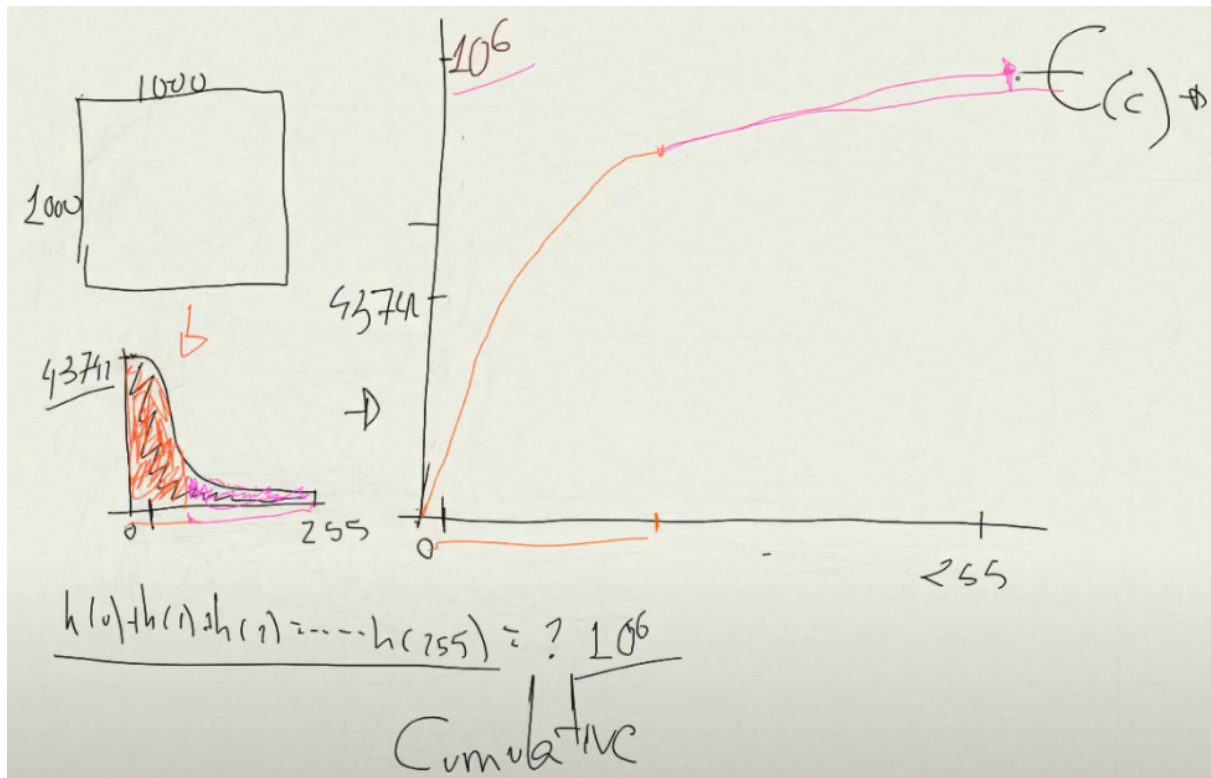 1000
1000
43741
0
255
10^6
43741
0
255
(c)
h(0)+h(1)+h(2)=.....h(255) = ? 10^6
Cumulative